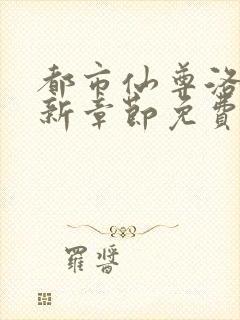 都市仙尊洛
新章節免費
羅晉